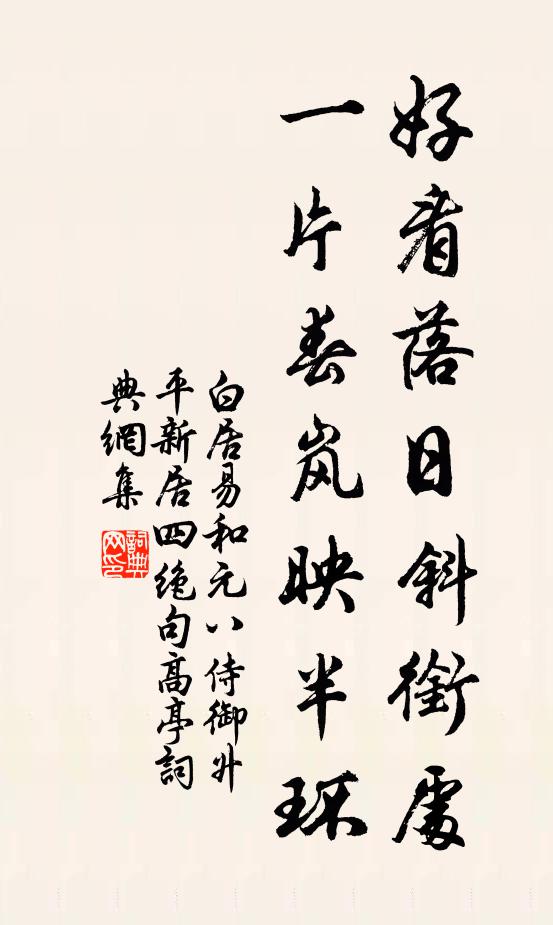 好看落日斜銜處
一片春岚映半环
白居易和元八侍御升
平新居四绝句高亭詞
典網集
詞典
网印